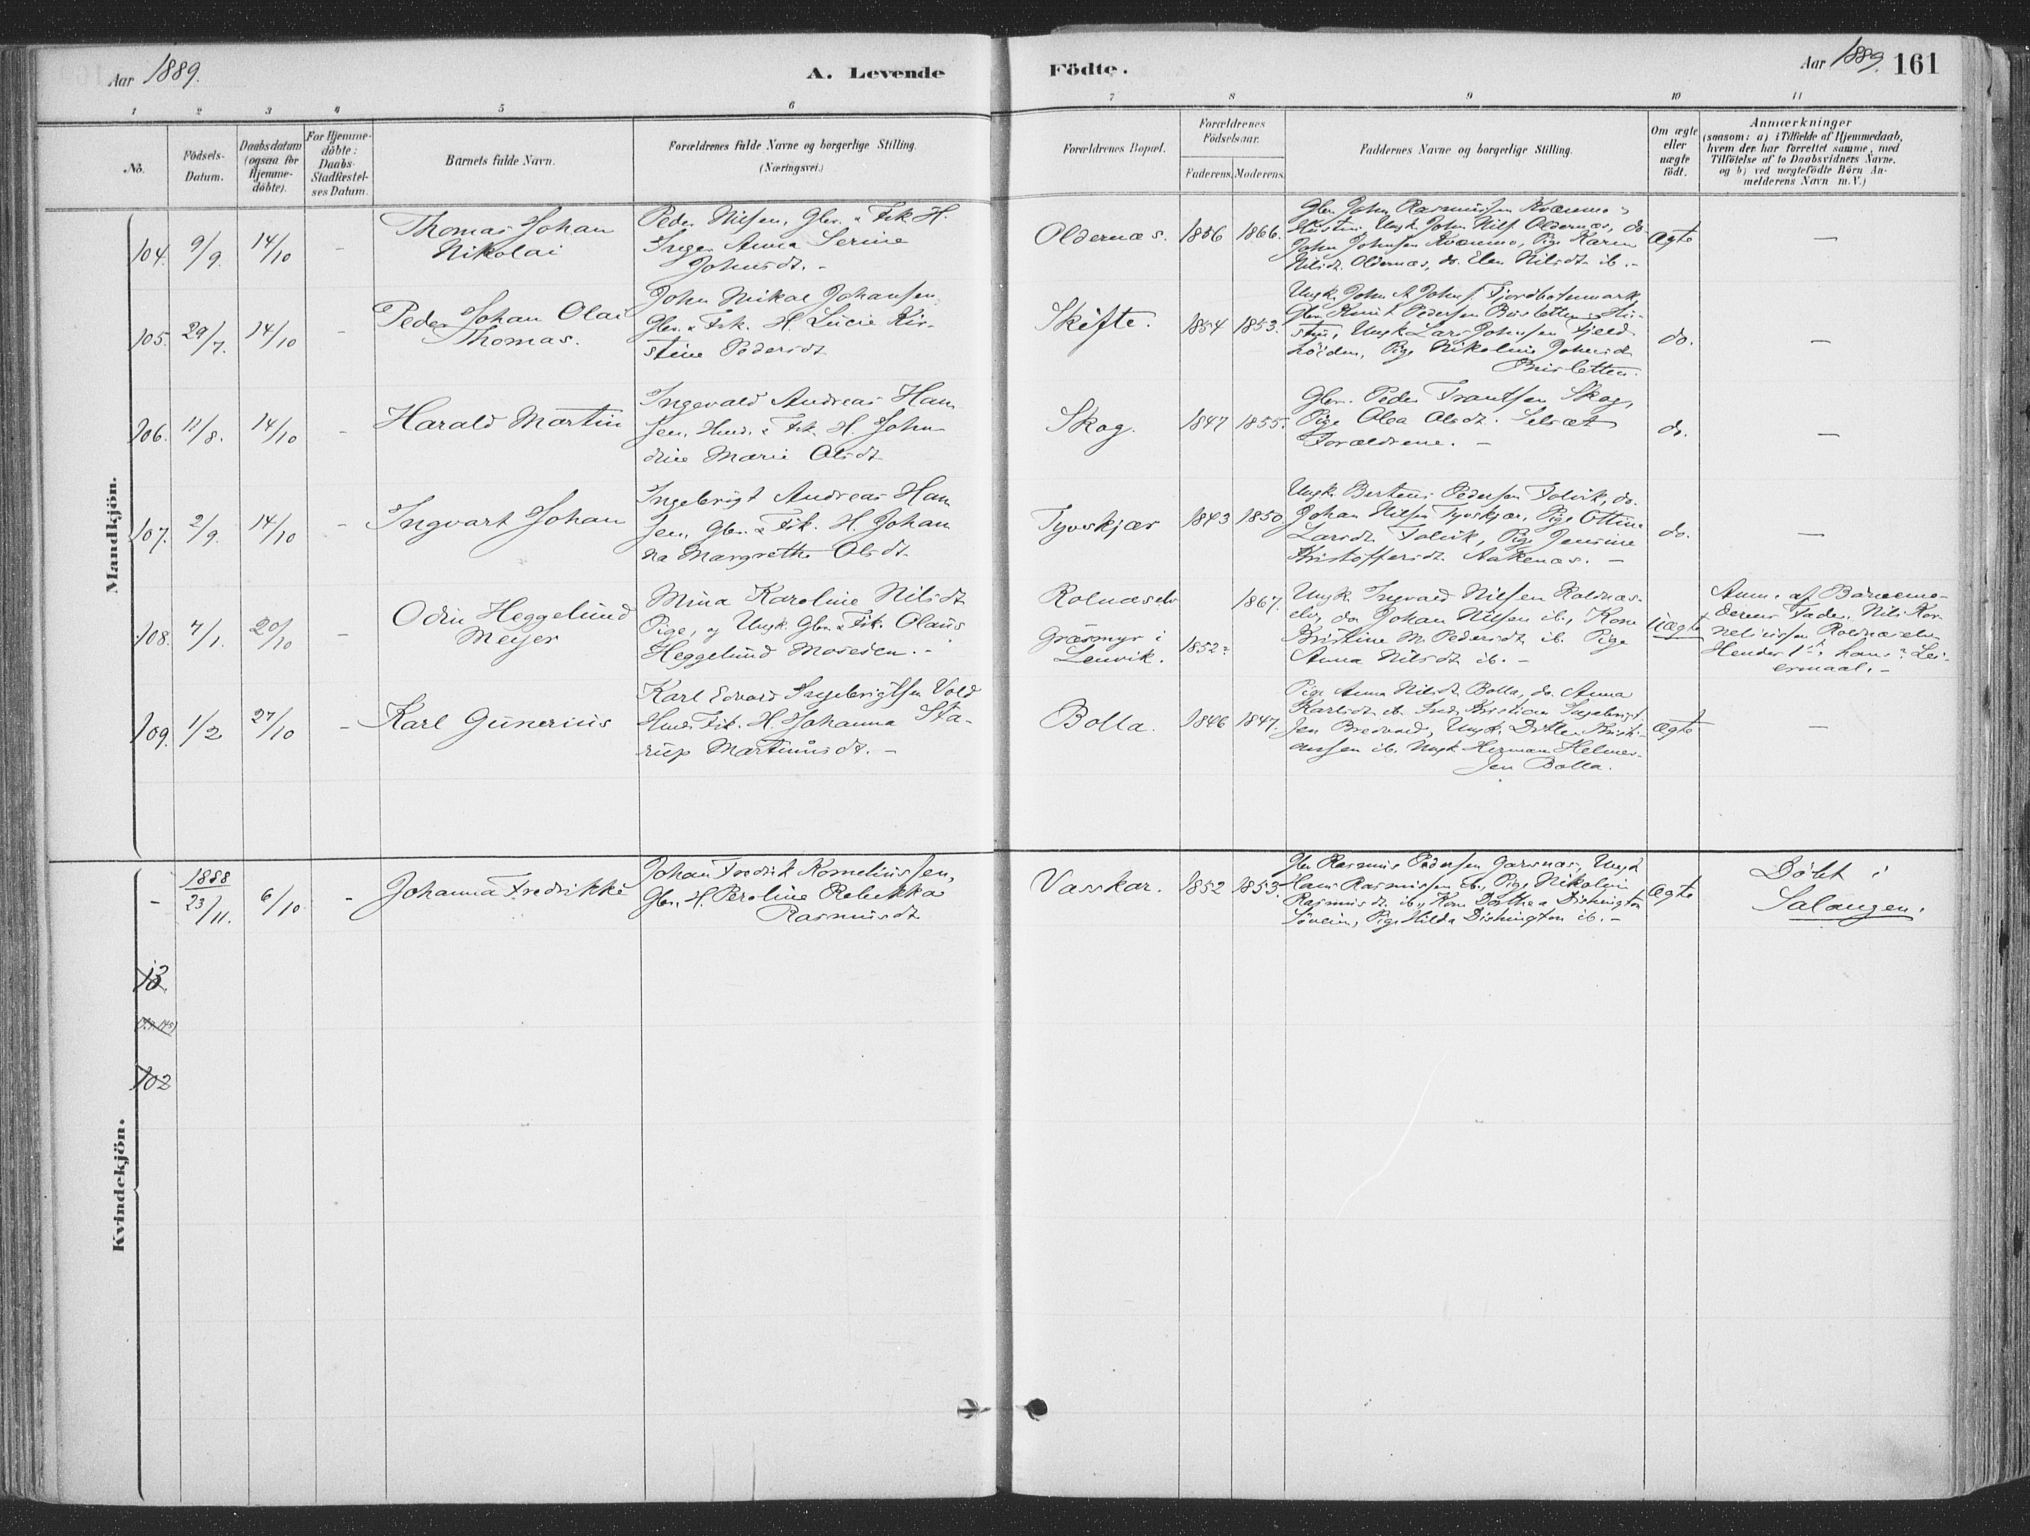 Aar 1889.
A. Levende
Födte.
Aar 1889. 161
1 2 3 4 5 6 7 8 9 10 11
No.
Födsels-
Datum.
Daabsdatum
(ogsaa for
Hjemme-
döbte).
For Hjemme-
döbte:
Daabs-
Stadfæstel-
ses Datum.
Barnets fulde Navn.
Forældrenes fulde Navne og borgerlige Stilling.
(Næringsvei.)
Forældrenes Bopæl.
Forældrenes
Födselsaar.
Faderens. Moderens.
Faddernes Navne og borgerlige Stilling.
Om ægte
eller
uægte
födt.
Anmærkninger
(saasom: a) i Tilfælde af Hjemmedaab,
hvem der har forrettet samme, med
Tilföielse af to Daabsvidners Navne.
og b) ved uægtefödte Börn An-
melderens Navn m. V.)
Mandkjön.
104. 9/9. 14/10 -
Thomas Johan
Nikolai
Peder Nilsen, Gbr. & Fisk. H.
Inger Anna Serine
Johnsdt. -
Oldernæs. 1856 1866.
Gbr. John Rasmussen Kvænmo &
Hustru, Ungk. John Nils. Oldernæs, do.
John Johnsen Kvænmo, Pige Karen
Nilsdt. Oldernæs, do. Elen Nilsdt. ib. -
Ægte
-
105. 29/7. 14/10 -
Peder Johan Olai
Thomas.
John Nikol. Johansen,
Gbr. & Fisk. H. Lucie Kir-
stine Pedersdt.
Skifte. 1854 1853.
Ungk. John A. Johns. Fjordbotnmark,
Gbr. Knut Pedersen &
Ungk. Lars Johnsen Fjeld-
höiden, Pige Nikoline Johnsdt.
do.
-
106. 11/8. 14/10 -
Harald Martin
Ingevald Andreas Han-
sen, Husm. & Fisk. H. John-
dine Marie Olsdt.
Skog. 1847 1855.
Gbr. Peder Frantsen Skog,
Pige Olea Olsdt. Selsæt
Forældrene. -
do.
-
107. 2/9. 14/10 -
Ingvart Johan
Ingebrigt Andreas Han-
sen, Gbr. & Fisk. H. Johan-
na Margrethe Olsdt.
Tyvskjær 1843 1850.
Ungk. Bertheus Pedersen Foldvik, do.
Johan Nilsen Tyvskjær, Pige Ottine
Larsdt. Foldvik, Pige Jensine
Kristoffersdt. Aakenæs. -
do.
-
108. 7/1. 20/10 -
Odin Heggelund
Meyer
Mina Karoline Nilsdt.
Pige, og Ungk. Gbr. & Fisk. Olaus
Heggelund Movesen. -
Rolnæselv
Græsmyr i
Lenvik.
1852? 1867.
Ungk. Ingvald Nilsen Rolnæs-
elv, do. Johan Nilsen ib., Kone
Kristine M. Pedersdt. ib. Pige
Anna Nilsdt. ib. -
Uægte
Anm. af Barnemo-
derens Fader, Nils Kor-
neliussen Rolnæselv.
Hendes 1ste, hans ? Lei-
ermaal. -
109. 1/2 27/10 -
Karl Gunerius
Karl Edvard Ingebrigtsen Vold
Husm. Fisk. H. Johanna Sta-
rup Martinusdt. -
Bolla. 1846 1847.
Pige Anna Nilsdt. Bolla, do. Anna
Karlsdt. ib. Ind. Kristian Ingebrigt-
sen Bredvad, Ungk. Ditlev Krist-
ansen ib. Ungk. Herman Helmer-
sen Bolla.
Ægte
-
Kvindekjön.
- 1888
23/11. 6/10 -
Johanna Fredrikke
Johan Fredrik Korneliussen,
Gbr. H. Peroline Rebekka
Rasmusdt.
Vasskar. 1852 1853.
Gbr. Rasmus Pedersen Garsnæs, Ungk.
Hans Rasmussen ib., Pige Nikolin
Rasmusdt. ib., Kone Dorthea Dishington
Sövein, Pige Hilda Dishington ib. -
Ægte
Döbt i
Salangen.
13.
102